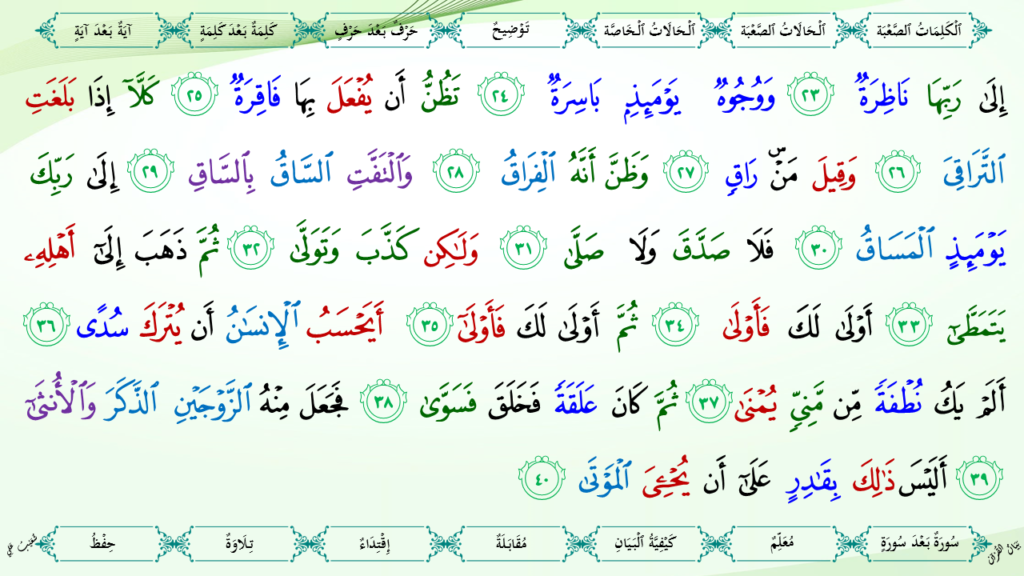 ٱلْكَلِمَاتُ ٱلصَّعْبَة ٱلْحَالَاتُ ٱلصَّعْبَة ٱلْحَالَاتُ ٱلْخَاصَّة تَوْضِيحٌ حَرْفٌ بَعْدَ حَرْفٍ كَلِمَةٌ بَعْدَ كَلِمَةٍ آيَةٌ بَعْدَ آيَةٍ
إِلَىٰ رَبِّهَا نَاظِرَةٌ ٢٣ وَوُجُوهٌ يَوْمَئِذٍۭ بَاسِرَةٌ ٢٤ تَظُنُّ أَن يُفْعَلَ بِهَا فَاقِرَةٌ ٢٥ كَلَّآ إِذَا بَلَغَتِ
ٱلتَّرَاقِىَ ٢٦ وَقِيلَ مَنْۜ رَاقٍ ٢٧ وَظَنَّ أَنَّهُ ٱلْفِرَاقُ ٢٨ وَٱلْتَفَّتِ ٱلسَّاقُ بِٱلسَّاقِ ٢٩ إِلَىٰ رَبِّكَ
يَوْمَئِذٍ ٱلْمَسَاقُ ٣٠ فَلَا صَدَّقَ وَلَا صَلَّىٰ ٣١ وَلَٰكِن كَذَّبَ وَتَوَلَّىٰ ٣٢ ثُمَّ ذَهَبَ إِلَىٰٓ أَهْلِهِۦ
يَتَمَطَّىٰٓ ٣٣ أَوْلَىٰ لَكَ فَأَوْلَىٰ ٣٤ ثُمَّ أَوْلَىٰ لَكَ فَأَوْلَىٰٓ ٣٥ أَيَحْسَبُ ٱلْإِنسَٰنُ أَن يُتْرَكَ سُدًى ٣٦
أَلَمْ يَكُ نُطْفَةً مِّن مَّنِىٍّ يُمْنَىٰ ٣٧ ثُمَّ كَانَ عَلَقَةً فَخَلَقَ فَسَوَّىٰ ٣٨ فَجَعَلَ مِنْهُ ٱلزَّوْجَيْنِ ٱلذَّكَرَ وَٱلْأُنثَىٰٓ
٣٩ أَلَيْسَ ذَٰلِكَ بِقَٰدِرٍ عَلَىٰٓ أَن يُحْـِۧىَ ٱلْمَوْتَىٰ ٤٠
سُورَةٌ بَعْدَ سُورَةٍ مُعَلِّمٌ كَيْفِيَّةُ ٱلْبَيَانِ مُقَابَلَةٌ إِقْتِدَاءٌ تِلَاوَةٌ حِفْظٌ
بَيَانُ القُرْآن